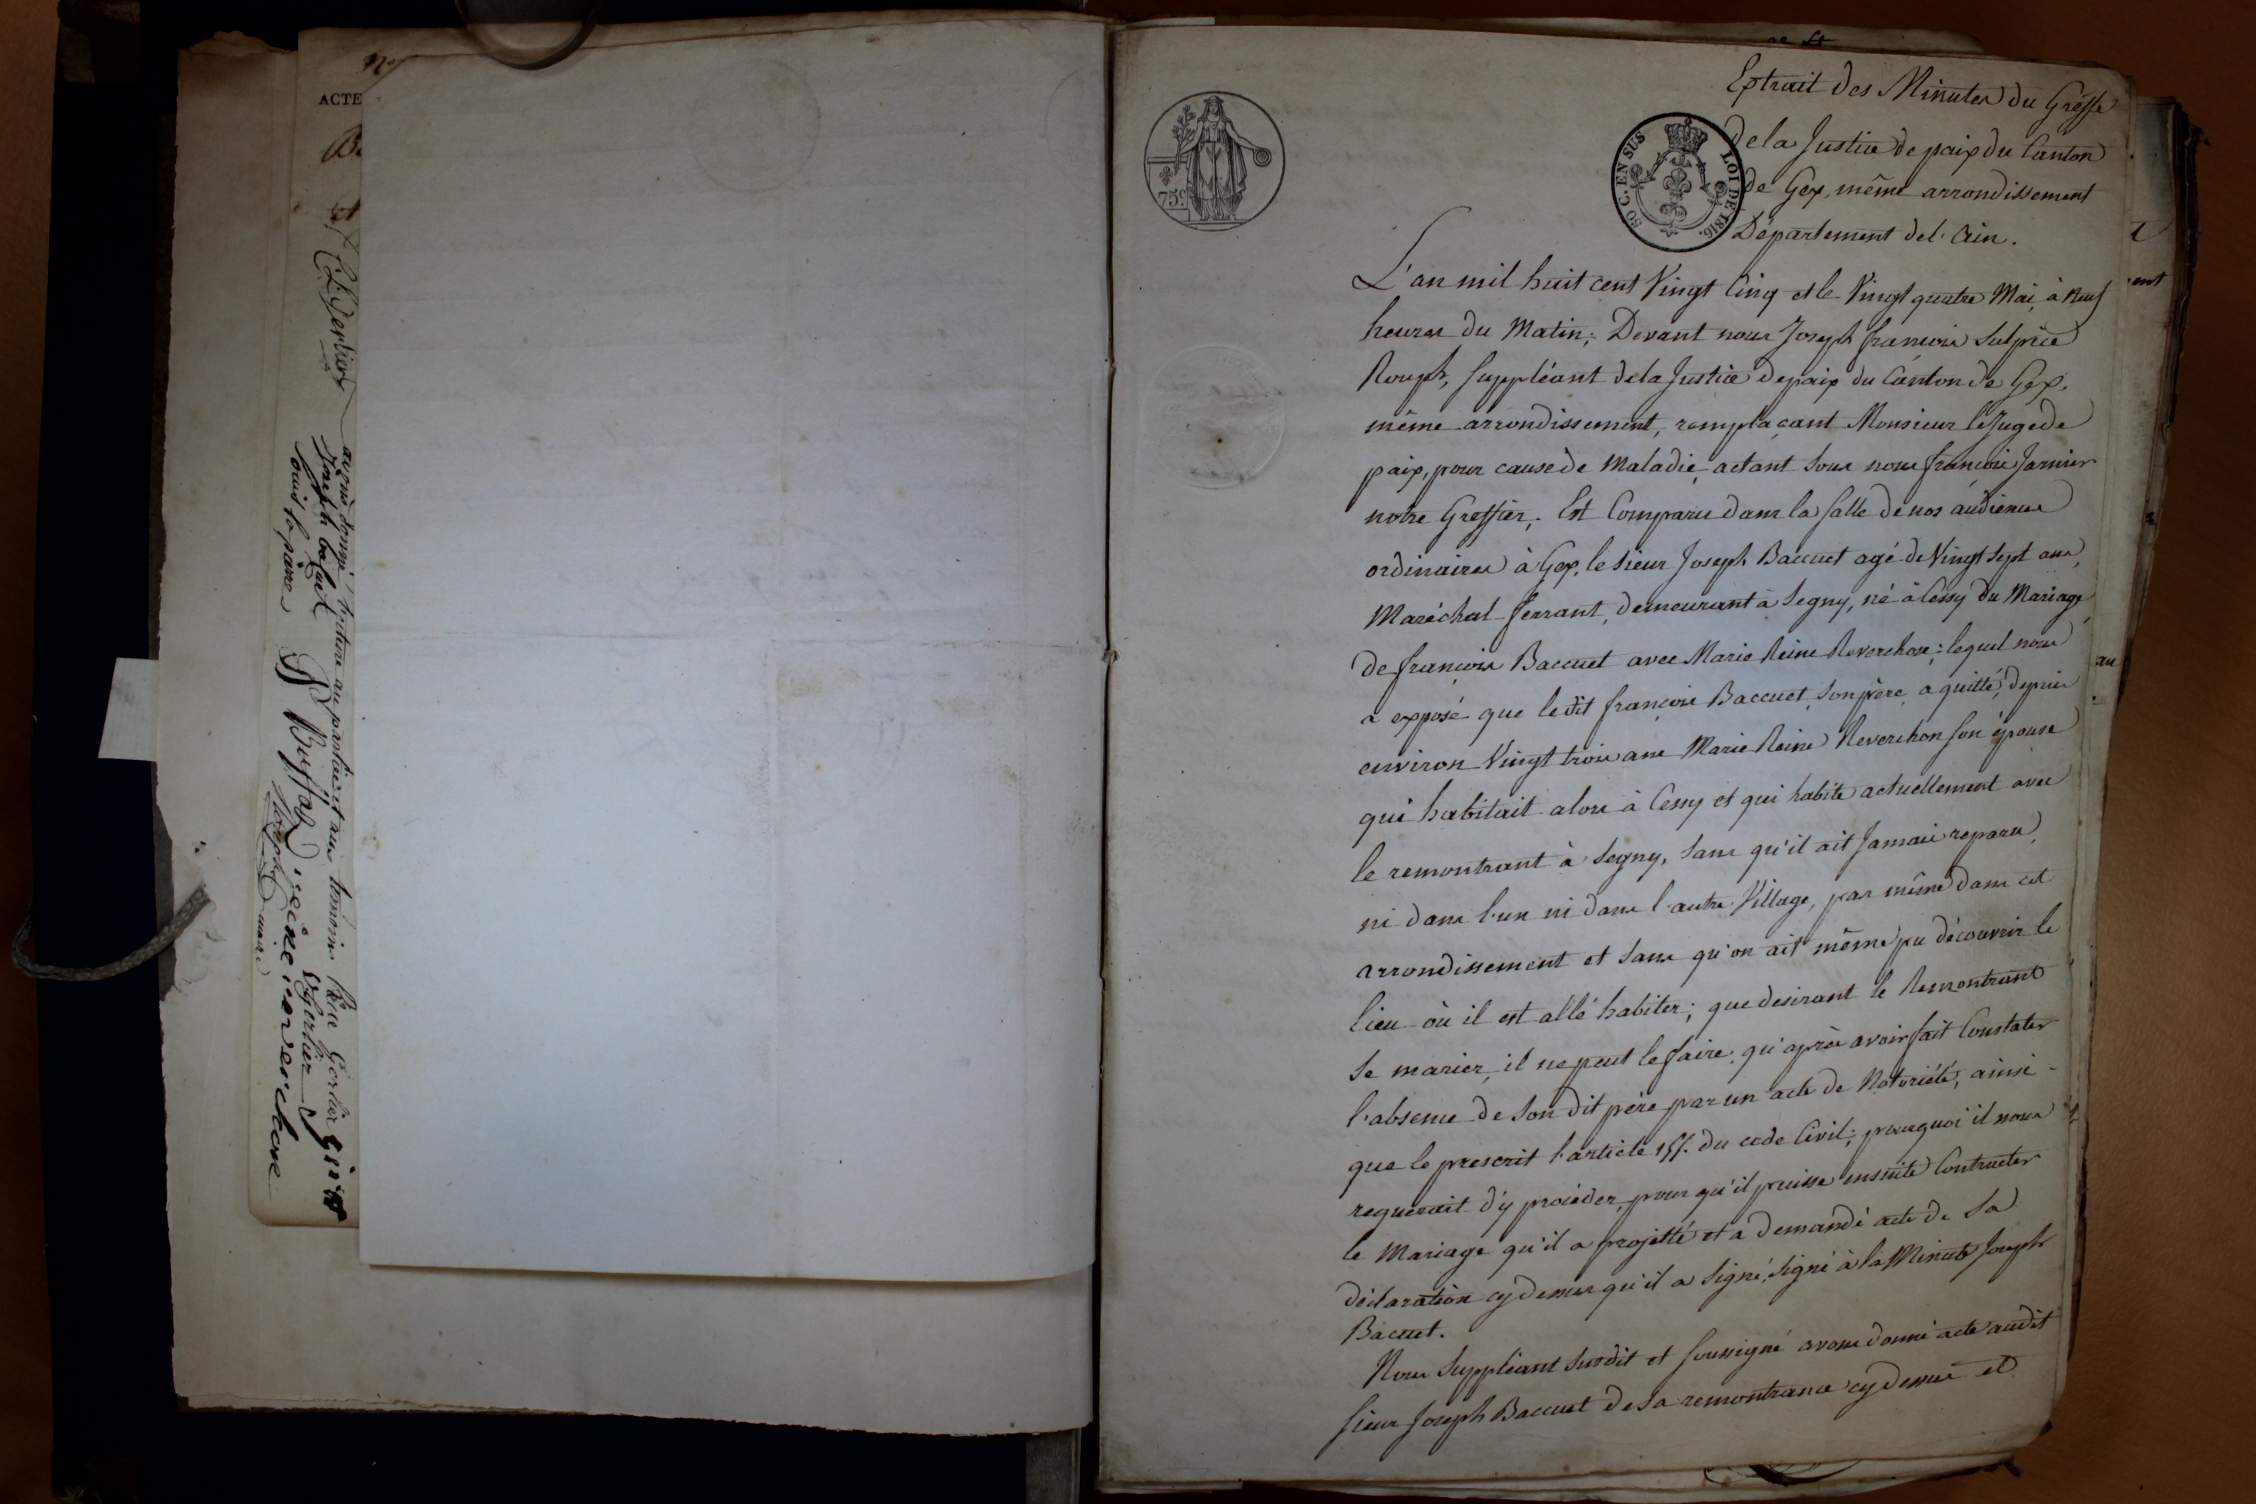 N°
ACTE
avons donné lecture aux parties et aux témoins
Joseph bacuet
Buffaz
Extrait des Minutes du Greffe
de la Justice de paix du Canton
de Gex, même arrondissement
Département de l'Ain.
75 c.
50 C. EN SUS
LOI DE 1816.
L'an mil huit cent Vingt Cinq et le Vingt quatre Mai, à Neuf
heures du Matin; Devant nous Joseph françois Sulpice
Rouph, Suppléant de la Justice de paix du Canton de Gex,
même arrondissement, remplaçant Monsieur le Juge de
paix, pour cause de Maladie, actant sous nous françois Jarnier
notre Greffier; Est Comparu dans la salle de nos audiences
ordinaires à Gex, le sieur Joseph Baccuet agé de Vingt sept ans,
Maréchal ferrant, demeurant à Segny, né à Cessy du Mariage
de françois Baccuet avec Marie Reine Reverchon; lequel nous
a exposé que le dit françois Baccuet, son père, a quitté, depuis
environ Vingt trois ans Marie Reine Reverchon son épouse
qui habitait alors à Cessy et qui habite actuellement avec
le remontrant à Segny, sans qu'il ait Jamais reparu,
ni dans l'un ni dans l'autre Village, pas même dans cet
arrondissement et sans qu'on ait même pu découvrir le
lieu où il est allé habiter; que desirant le Remontrant
se marier, il ne peut le faire, qu'après avoir fait Constater
l'absence de son dit père par un acte de Notoriété, ainsi
que le prescrit l'article 155. du code Civil; pourquoi il nous
requerait d'y procéder, pour qu'il puisse ensuite Contracter
le Mariage qu'il a projetté et a demandé acte de sa
déclaration cy dessus qu'il a signé, signé à la Minute Joseph
Bacuet.
Nous Suppléant susdit et soussigné avons donné acte audit
sieur Joseph Baccuet de sa remontrance cy dessus et